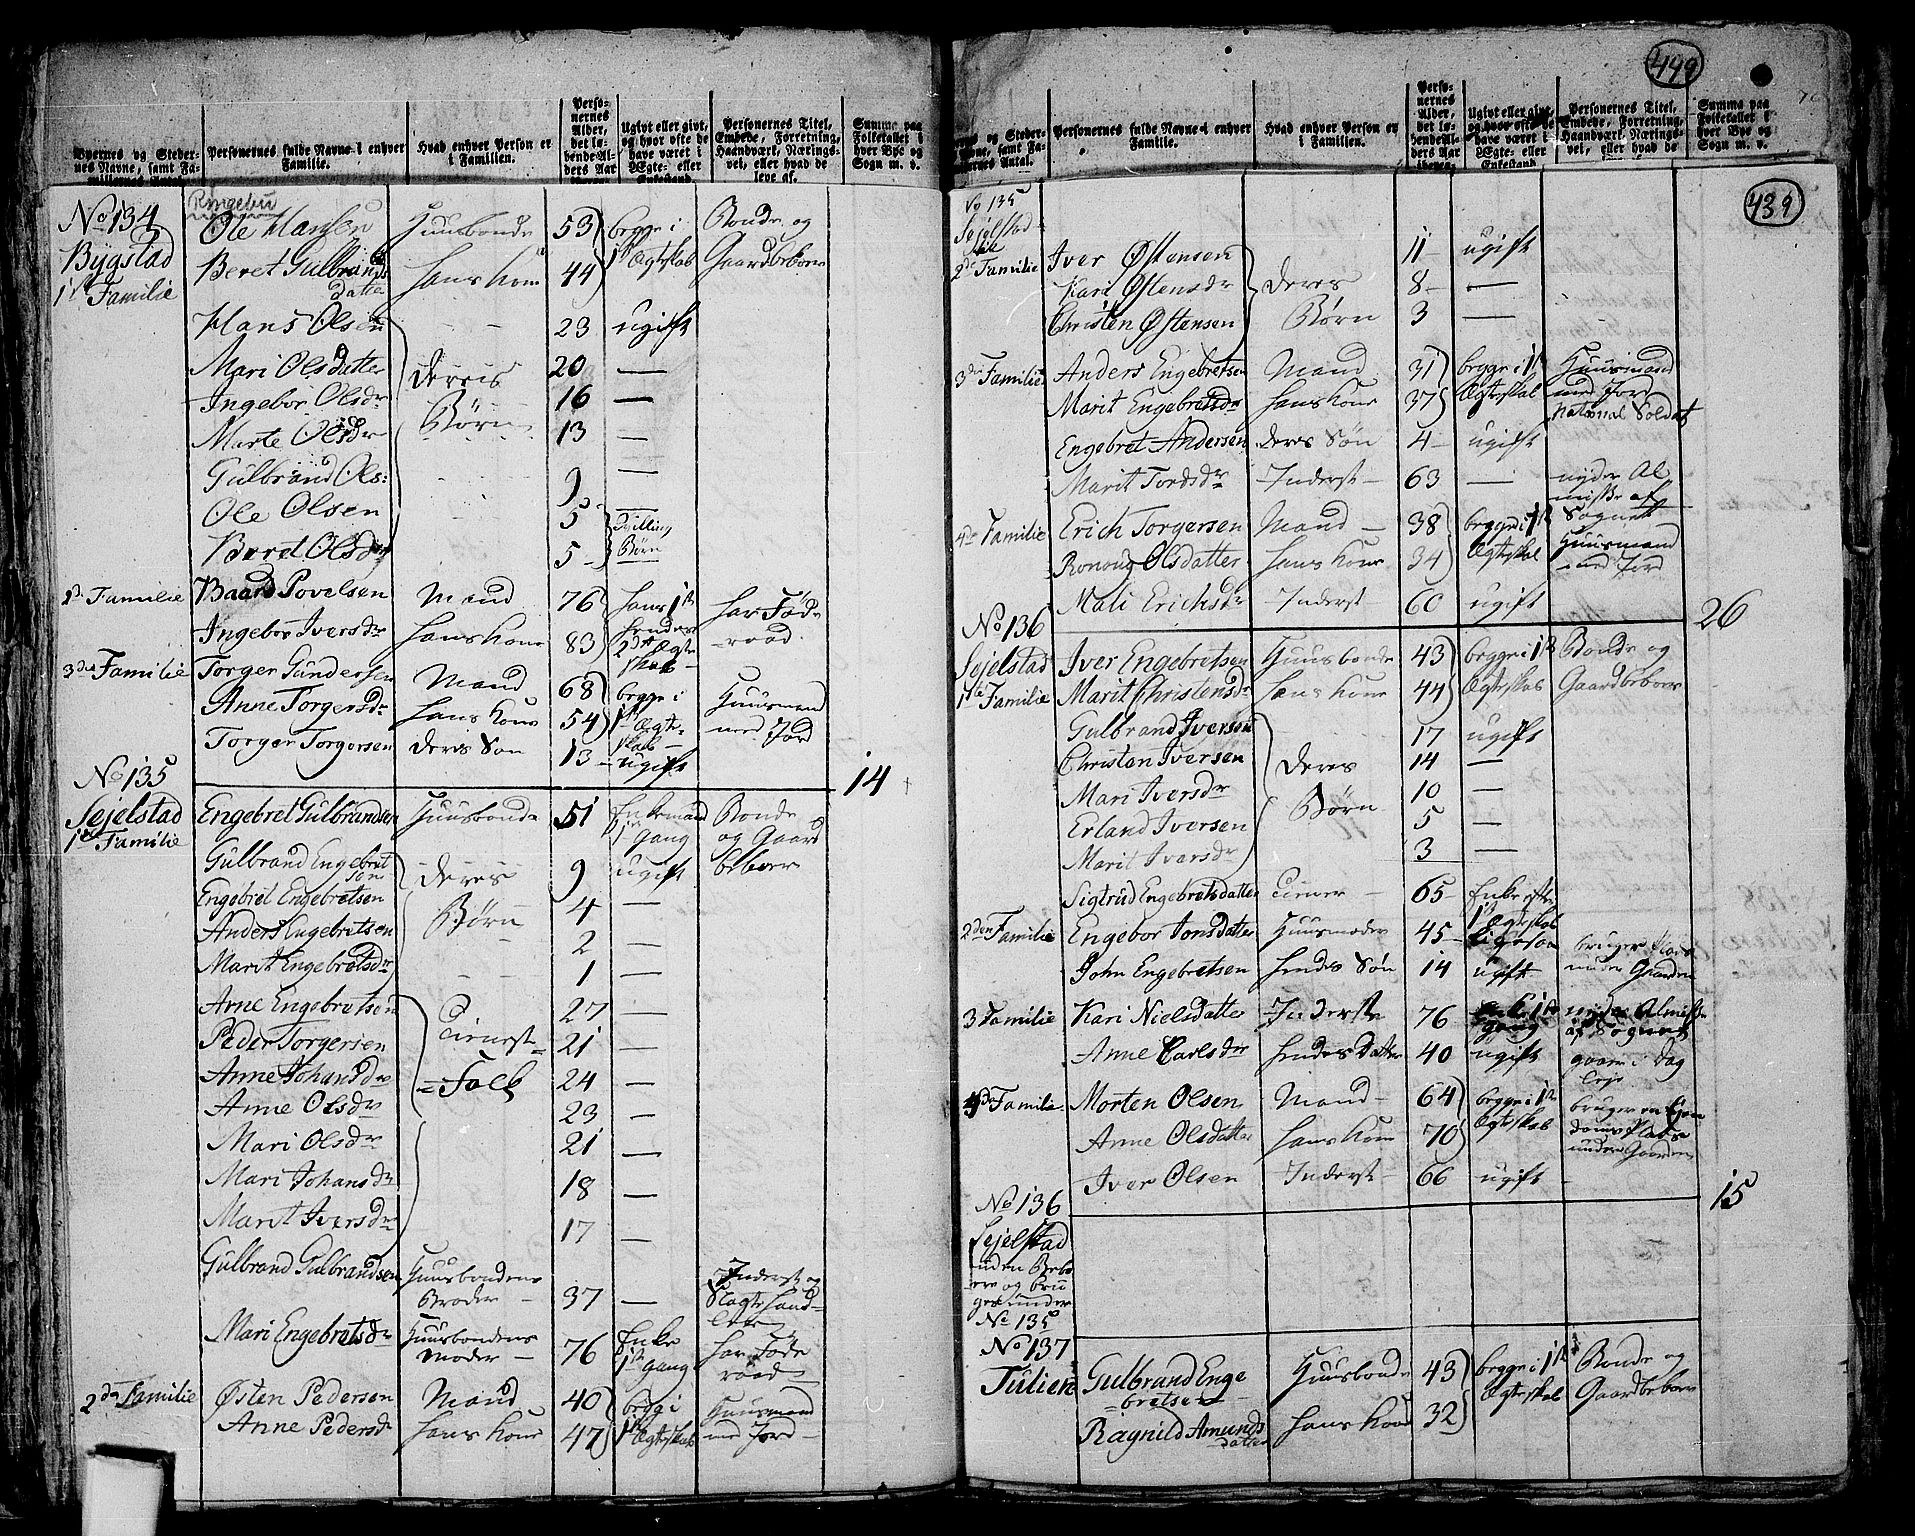 449
439
Byernes og Steder-
nes Navne, samt Fa-
milliernes Antal.
Personernes fulde Navne i enhver
Familie.
Hvad enhver Person er
i Familien.
Perso-
nernes
Alder,
det lø-
bende Al-
ders Aar
Ugivt eller givt,
og hvor ofte de
have været i
Ægte- eller
Enkestand
Personernes Titel,
Embede, Forretning,
Haandværk, Nærings-
vei, eller hvad de
leve af.
Summa paa
Folketallet i
hver Bye og
Sogn m. v.
Ringebu
No 134 Ole Hansen Huusbonde 53 begge i Bonde og
Bygstad Beret Gulbrands
datter hans Kone 44 1ste Ægteskab Gaardbeboer
1ste Familie
Hans Olsen 23 ugift
Mari Olsdatter deres 20 —
Ingebor Olsdr Børn 16 —
Marte Olsdr 13 —
Gulbrand Ols: 9 —
Ole Olsen 5 Tvilling
Beret Olsdr 5 Børn
2de Familie Baard Povelsen Mand 76 hans 1ste har Føde
Ingebor Iversdr hans Kone 83 hendes raad
2det Ægte
skab
3die Familie Torger Gundersen Mand 68 begge i Huusmand
Anne Torgersdr hans Kone 54 1ste Ægte- med Jord
skab
Torger Torgersen deres Søn 13 ugift
14
No 135
Sejelstad Engebret Gulbrandsen Huusbonde 51 Enkemand Bonde
1ste Familie 1ste Gang og Gaard
beboer
Gulbrand Engebret
sen deres 9 ugift
Engebret Engebretsen Børn 4 —
Anders Engebretsen 2 —
Marit Engebretsdr 1 —
Arne Engebretsen Tienest 27 —
Peder Torgersen 21 —
Anne Johansdr = Folk 24 —
Anne Olsdr 23 —
Mari Olsdr 21 —
Mari Johansdr 18 —
Marit Iversdr 17 —
Gulbrand Gulbrandsen Huusbondens
Broder 37 — Inderst og
Mari Engebretsdr Huusbondens
Moder 76 Enke
1ste Gang har Føde
raad
2den Familie Østen Pedersen Mand 40 begge i Huusmand
Anne Pedersdr hans Kone 47 1ste Ægteskab med Jord
Personernes fulde Navne i enhver
Familie.
Hvad enhver Person er
i Familien.
Perso-
nernes
Alder,
det lø-
bende Al-
ders Aar
Ugivt eller givt,
og hvor ofte de
have været i
Ægte- eller
Enkestand
Personernes Titel,
Embede, Forretning,
Haandværk, Nærings-
vei, eller hvad de
Summa paa
Folketallet i
hver Bye og
Sogn m. v.
No 135
Sejelstad
2de Familie Iver Østensen 11 ugift
Kari Østensdr deres 8 —
Christen Østensen Børn 3 —
3die Familie Anders Engebretsen Mand 31 begge i 1ste Huusmand
Marit Engebretsdr hans Kone 37 Ægteskab med Jord
National Soldat
Engebret Andersen deres Søn 4 ugift
Marit Tordsdr Inderst 63 — nyder Al
misse af
Sognet
4de Familie Erich Torgersen Mand 38 begge i 1ste Huusmand
Ronoug Olsdatter hans Kone 34 Ægteskab med Jord
Mali Erichsdr Inderst 60 ugift
26
No 136
Sejelstad Iver Engebretsen Huusbonde 43 begge i 1ste Bonde og
1ste Familie Marit Christensdr hans Kone 44 Ægteskab Gaardbeboer
Gulbrand Iversen 17 ugift
Christen Iversen deres 14 —
Mari Iversdr Børn 10 —
Erland Iversen 5 —
Marit Iversdr 3 —
Sigtrud Engebretsdatter Tiener 65 Enke efter
1ste Ægteskab
2den Familie Engebor Jonsdatter Huusmoder 45 bruger Plads
John Engebretsen hendes Søn 14 ugift under Gaarden
3 Familie Kari Nielsdatter Inderste 76 Enke 1ste
Gang nyder Almisse
af Sognet
Anne Carlsdr hendes Datter 40 ugift gaaer i Dag
leje
4de Familie Morten Olsen Mand 64 begge i 1ste bruger en
Anne Olsdatter hans Kone 70 Ægteskab Plads
under Gaarden
Iver Olsen Inderst 66 ugift
15
No 136
Sejelstad
uden Bebo
ere og bru
ges under
No 135
No 137
Tulien Gulbrand Enge
bretsen Huusbonde 43 begge i 1ste Bonde og
Ragnild Amunds
datter hans Kone 32 Ægteskab Gaardbeboer